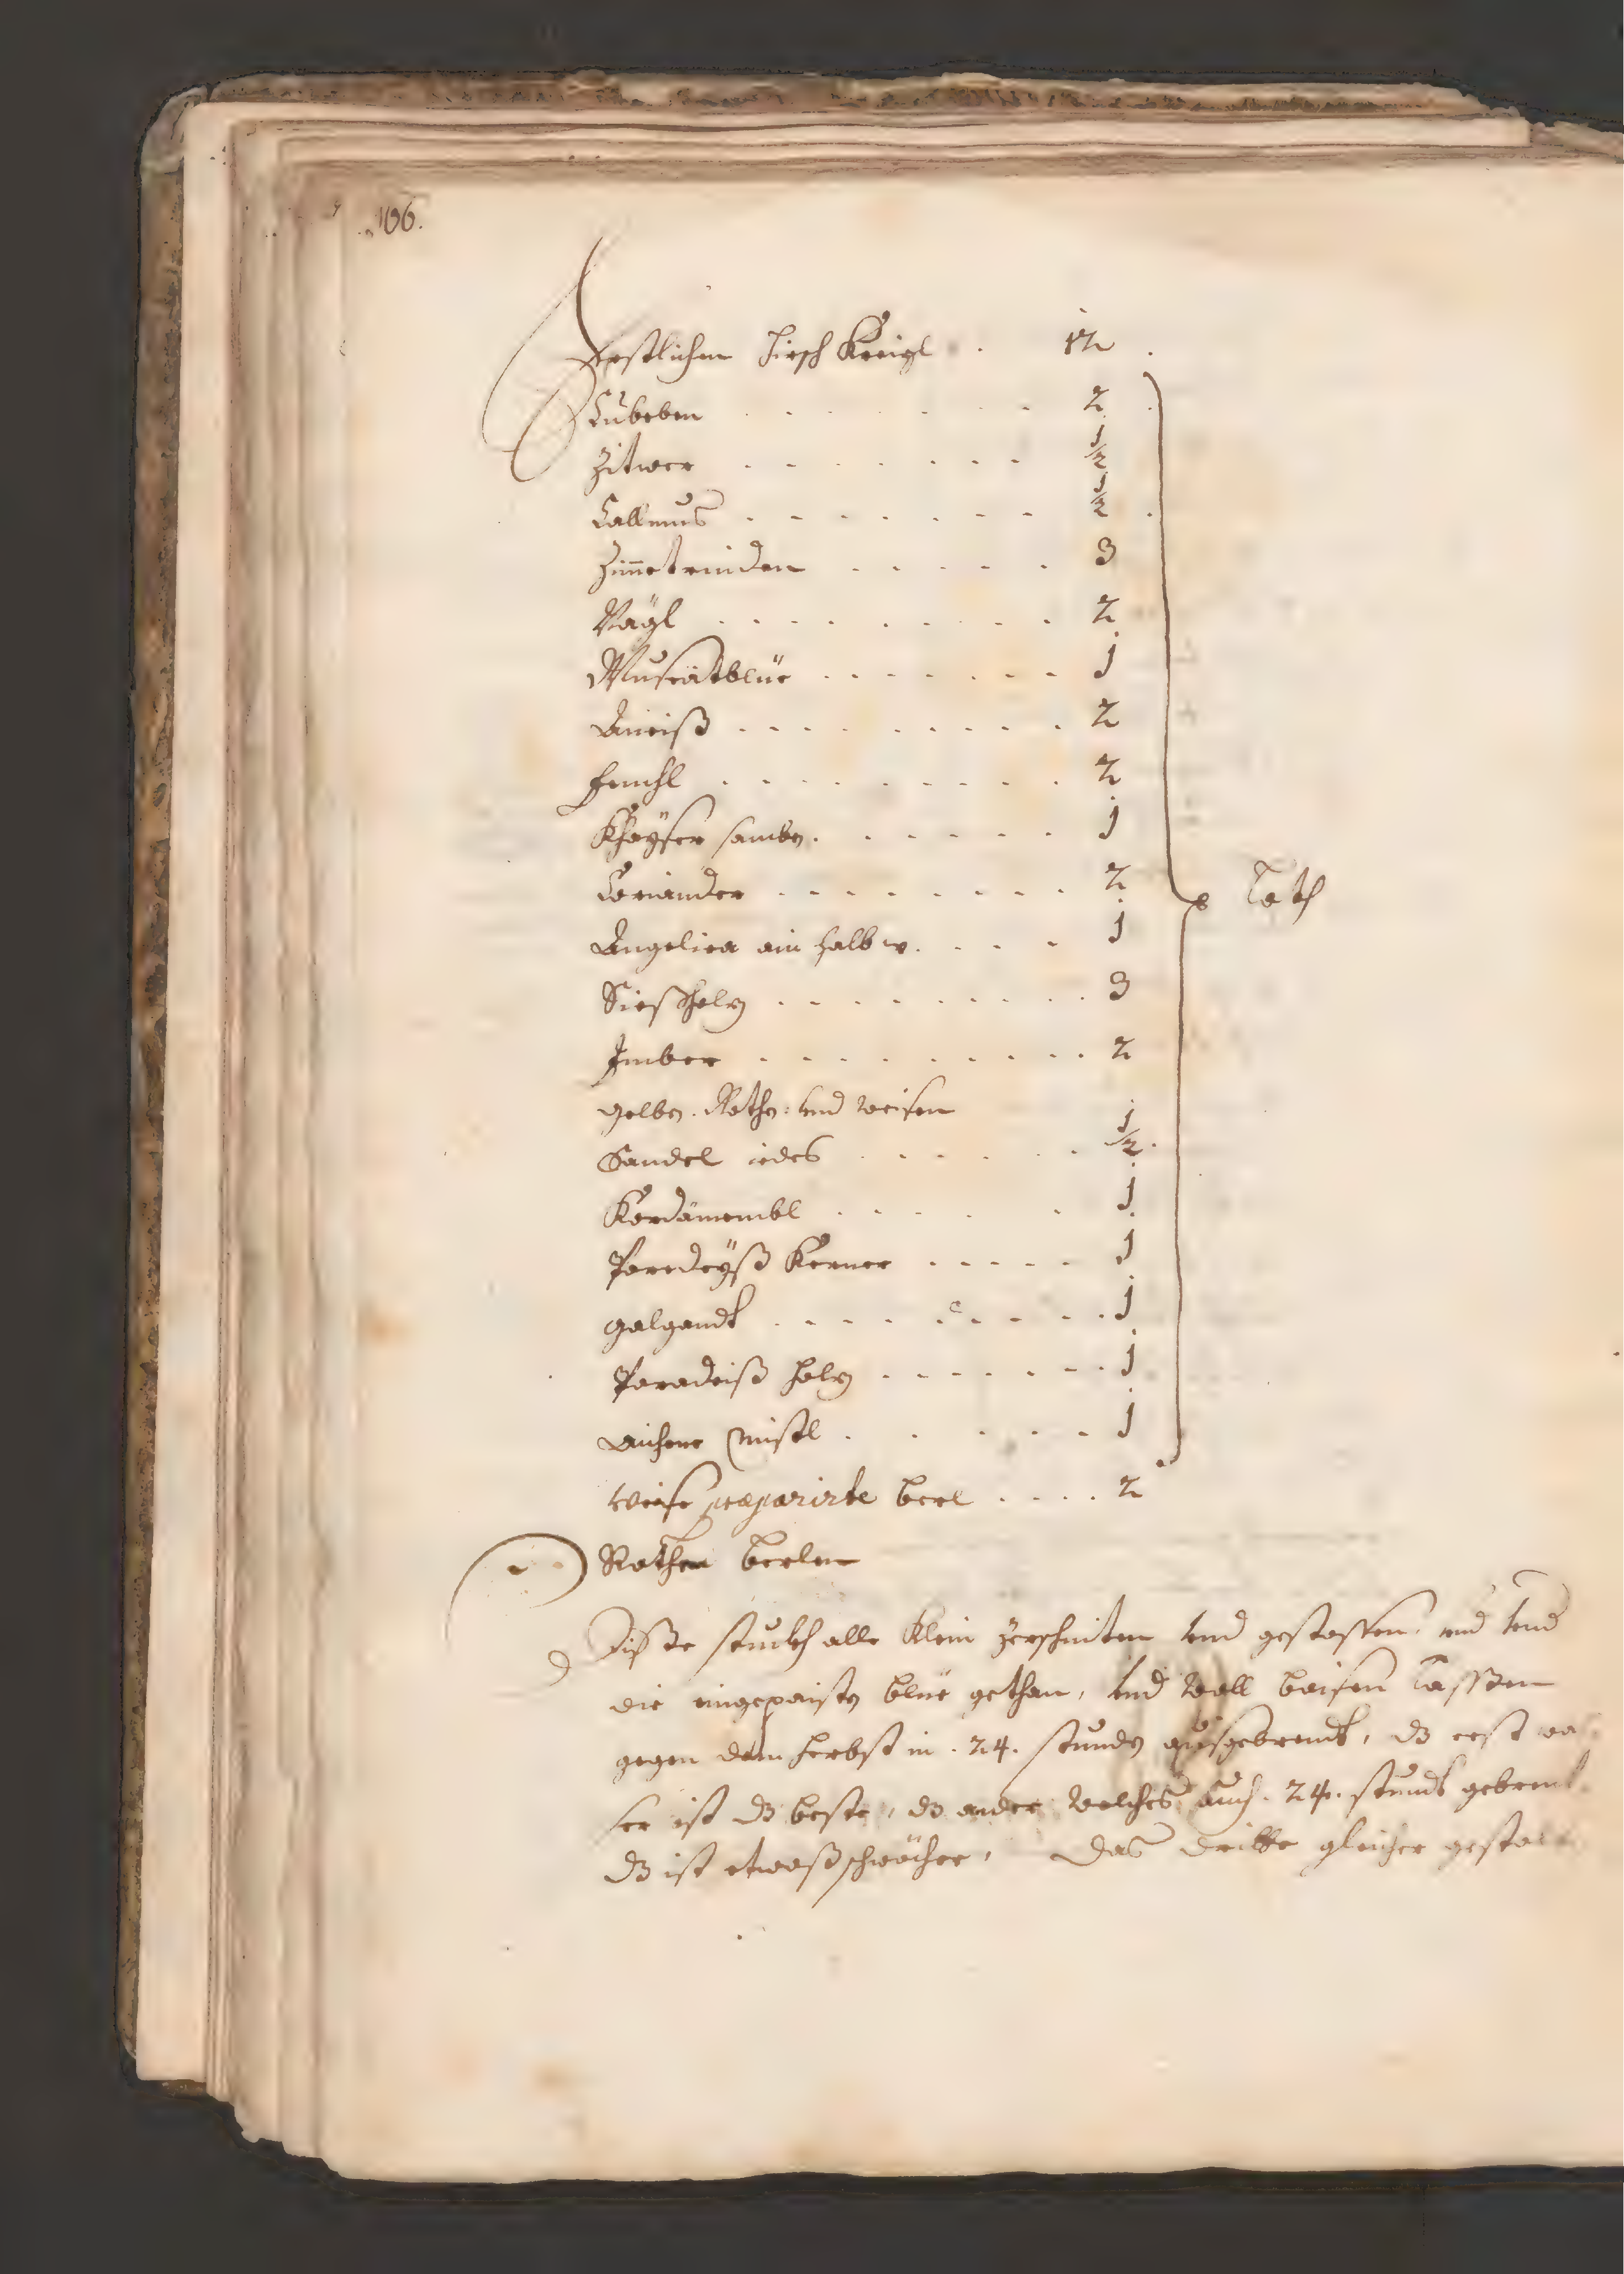 106.
Erstlichen hirsch Kreigl . 12 .
Cubeben . . . . . . . 2
Zitwer . . . . . . . ½
Callmus . . . . . . . ½
Zim̅etrinden . . . . . 3
Nägl . . . . . . . . 2
Muscätblüe . . . . . . 1
Aneiß . . . . . . . . 2
fenchl . . . . . . . . 2
Coriander . . . . . . . 2 Loth
Angelica ain halb . . . 1
Siesholz . . . . . . . . 3
Imber . . . . . . . . 2
gelben. Rothen: und weisen
Sandel iedes . . . . . ½.
Kordämombl . . . . . 1
Paredeÿß Kerner . . . . . 1
galgandt . . . . . . . . 1
Paradeiß holz . . . . . . 1
aichene mistl . . . . . 1
weise præparirte berl . . . . 2
Rothe berlen
Disse stuckh alle klein zerschniten und gestossen, und
die eingepaiste blüe gethan, und woll baisen lassen
gegen dem herbst in . 24. stunden ausgebrendt, dz erst wa
ser ist dz beste, dz ander welches auch . 24. stundt gebrent
dz ist etwaß schwächer, das dritte gleicher gestalt